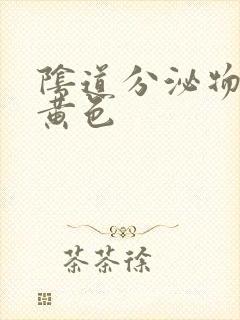 陰道分泌物
黃色
茶茶徐